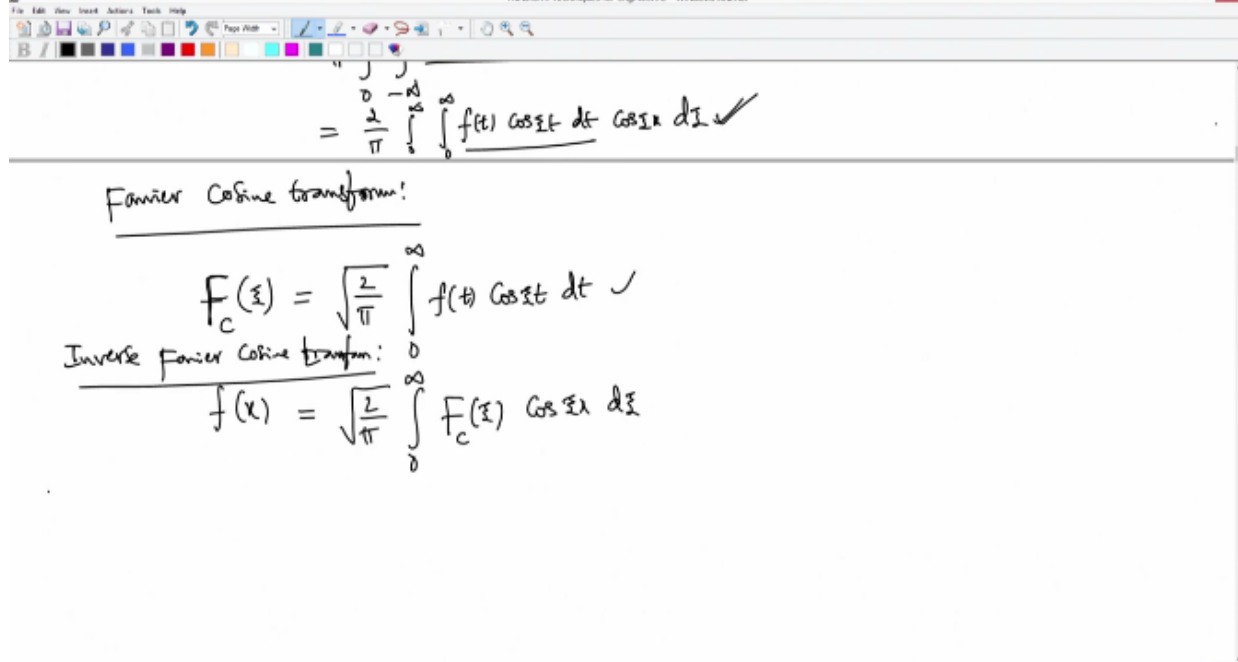 File Edit View Insert Actions Tools Help
Page Width
B I
0 -∞
= 2/π ∫₀^∞ ∫₀^∞ f(t) cosξt dt cosξx dξ ✓
Fourier Cosine transform:
F_c(ξ) = √(2/π) ∫₀^∞ f(t) Cosξt dt ✓
Inverse Fourier Cosine transform:
f(x) = √(2/π) ∫₀^∞ F_c(ξ) Cos ξx dξ